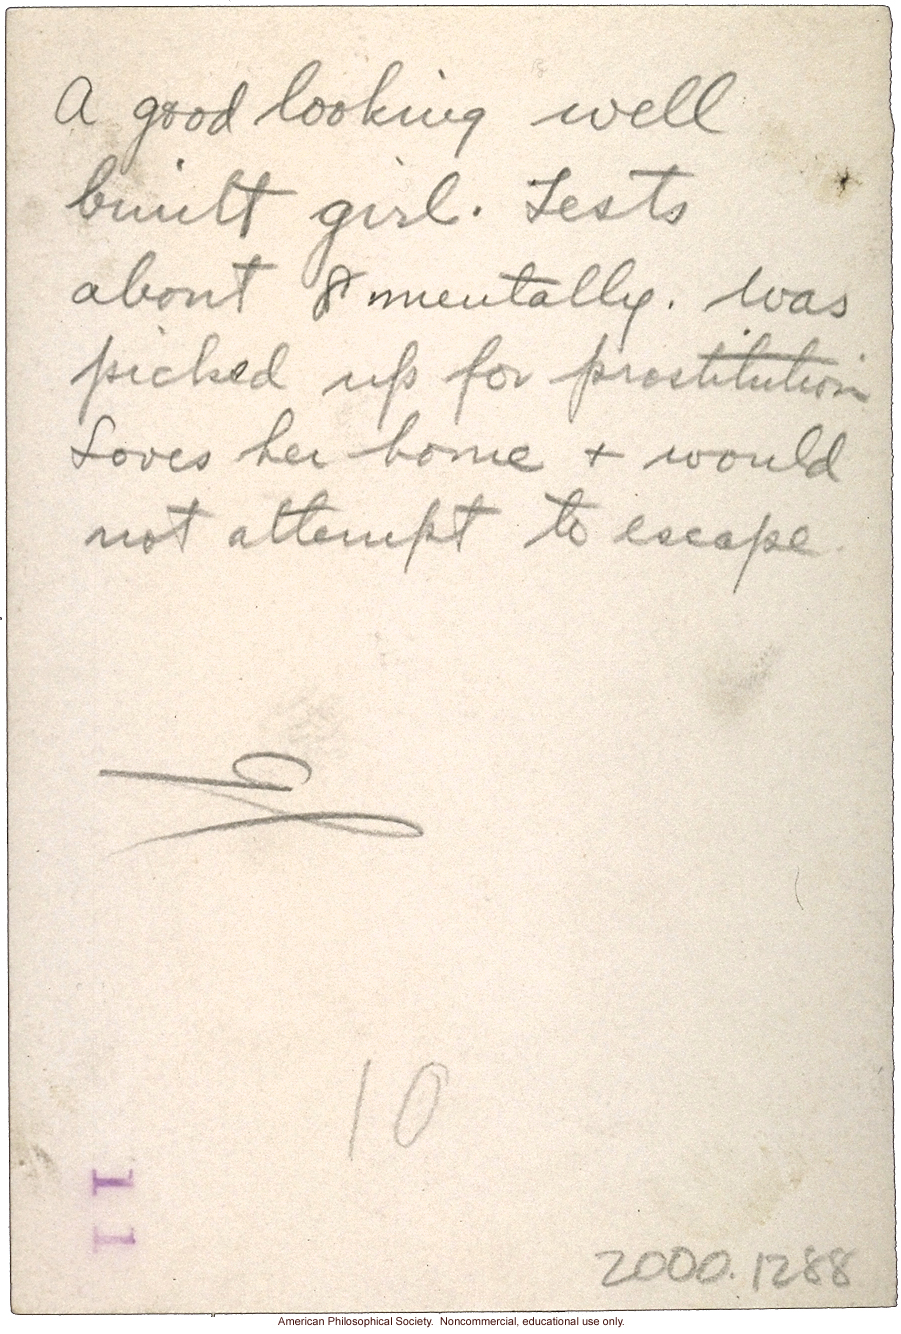 A good looking well
built girl. Tests
about 8 mentally. Was
picked up for prostitution
Loves her home + would
not attempt to escape.
10
11
2000.1288
American Philosophical Society. Noncommercial, educational use only.